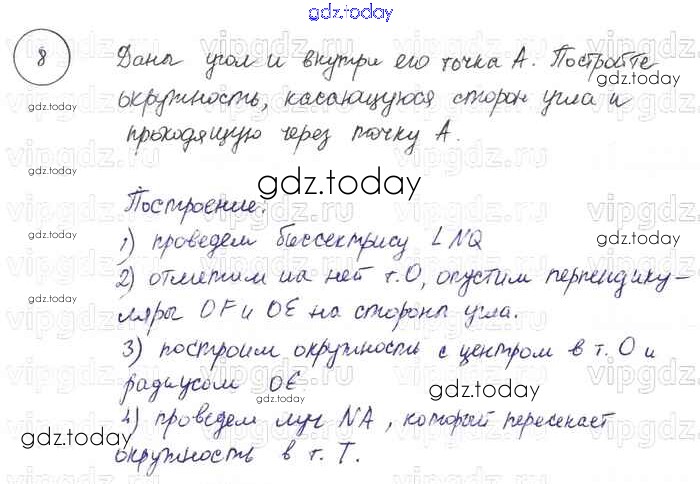 gdz.today
8 Даны угол и внутри его точка А. Постройте
окружность, касающуюся сторон угла и
проходящую через точку А.
gdz.today
Построение:
1) проведем биссектрису ∠NQ
2) отметим на ней т.О, опустим перпендику-
ляры OF и OE на стороны угла.
3) построим окружность с центром в т. О и
радиусом OE.
4) проведем луч NA, который пересекает
окружность в т. Т.
gdz.today
gdz.today
gdz.today
gdz.today
gdz.today
gdz.today
gdz.today
gdz.today
gdz.today